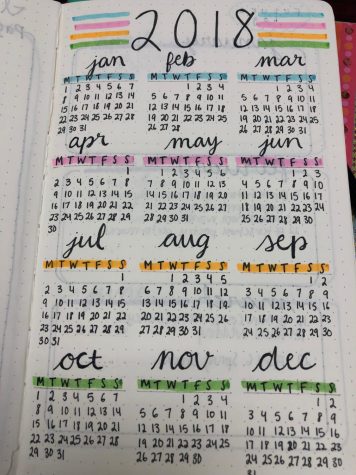 2018
jan
M T W T F S S
1 2 3 4 5 6 7
8 9 10 11 12 13 14
15 16 17 18 19 20 21
22 23 24 25 26 27 28
29 30 31
feb
M T W T F S S
1 2 3 4
5 6 7 8 9 10 11
12 13 14 15 16 17 18
19 20 21 22 23 24 25
26 27 28
mar
M T W T F S S
1 2 3 4
5 6 7 8 9 10 11
12 13 14 15 16 17 18
19 20 21 22 23 24 25
26 27 28 29 30 31
apr
M T W T F S S
1
2 3 4 5 6 7 8
9 10 11 12 13 14 15
16 17 18 19 20 21 22
23 24 25 26 27 28 29
30
may
M T W T F S S
1 2 3 4 5 6
7 8 9 10 11 12 13
14 15 16 17 18 19 20
21 22 23 24 25 26 27
28 29 30 31
jun
M T W T F S S
1 2 3
4 5 6 7 8 9 10
11 12 13 14 15 16 17
18 19 20 21 22 23 24
25 26 27 28 29 30
jul
M T W T F S S
1
2 3 4 5 6 7 8
9 10 11 12 13 14 15
16 17 18 19 20 21 22
23 24 25 26 27 28 29
30 31
aug
M T W T F S S
1 2 3 4 5
6 7 8 9 10 11 12
13 14 15 16 17 18 19
20 21 22 23 24 25 26
27 28 29 30 31
sep
M T W T F S S
1 2
3 4 5 6 7 8 9
10 11 12 13 14 15 16
17 18 19 20 21 22 23
24 25 26 27 28 29 30
oct
M T W T F S S
1 2 3 4 5 6 7
8 9 10 11 12 13 14
15 16 17 18 19 20 21
22 23 24 25 26 27 28
29 30 31
nov
M T W T F S S
1 2 3 4
5 6 7 8 9 10 11
12 13 14 15 16 17 18
19 20 21 22 23 24 25
26 27 28 29 30
dec
M T W T F S S
1 2
3 4 5 6 7 8 9
10 11 12 13 14 15 16
17 18 19 20 21 22 23
24 25 26 27 28 29 30
31